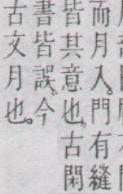 而月入。門有縫
皆其意也。古閑
書皆誤。今
古文月也。